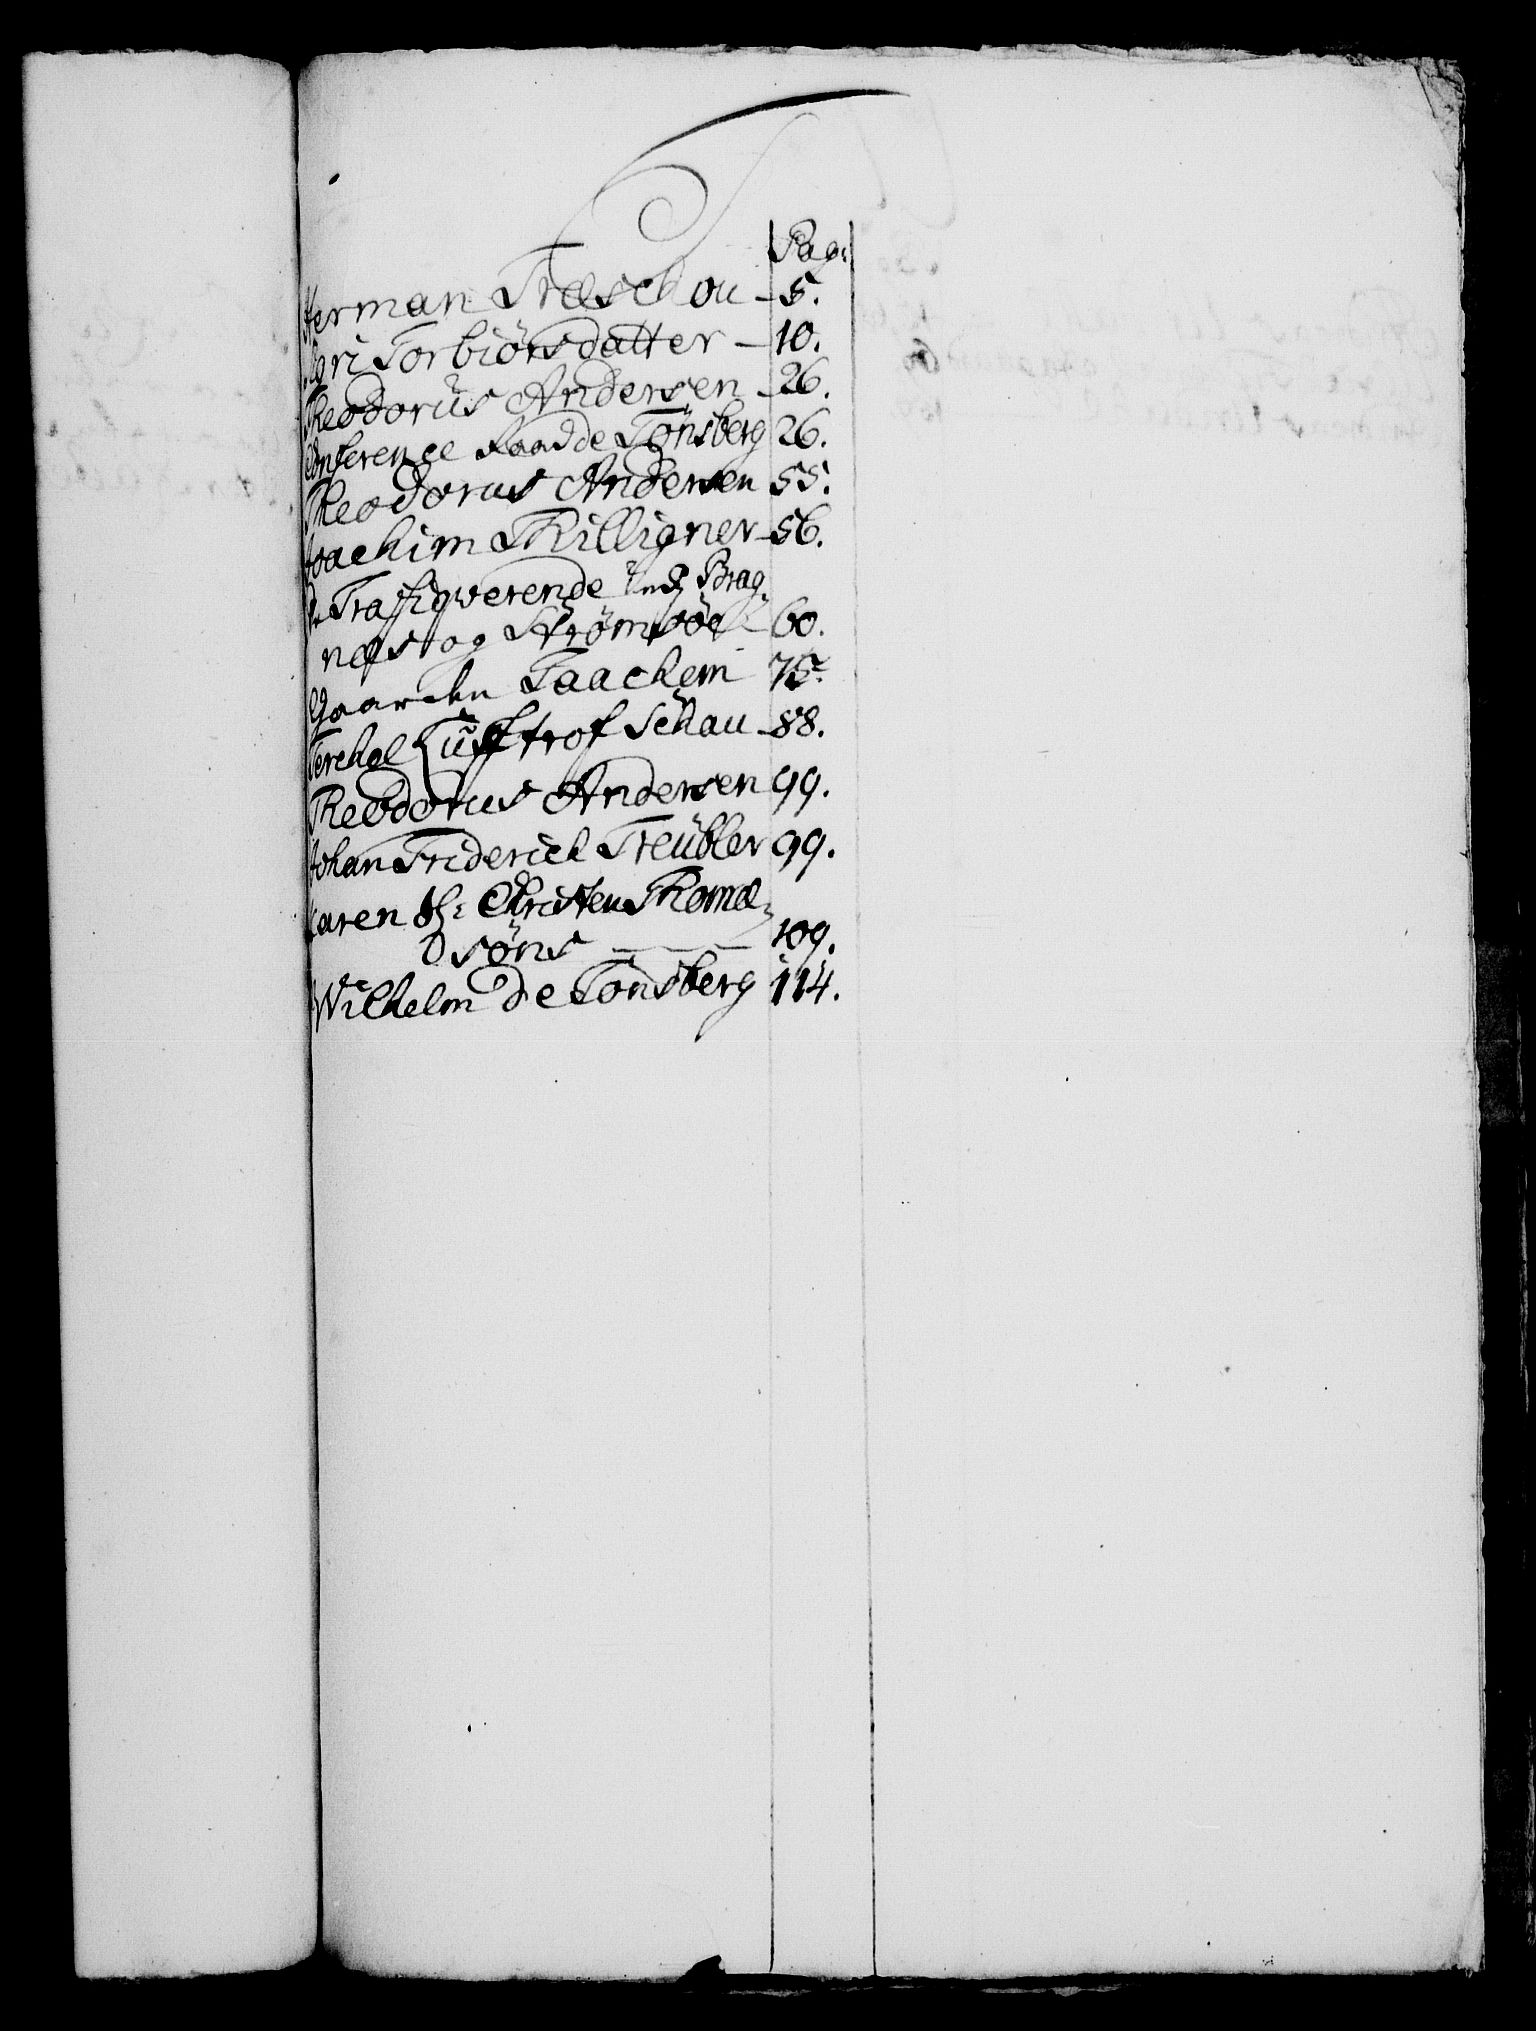 T
Pag:
Herman Træschou – 5.
Kari Torbiörnsdatter – 10.
Theodorus Andersen – 26.
Conference Raad de Tönsberg 26.
Theodorus Andersen 55.
Joachim Thilligner – 56.
De Traffiqverende ved Brag
næs og Strömsöe – 60.
Gaarden Taachem 75.
Terchel Schau – 88.
Theodorus Andersen 99.
Johan Friderich Treübler 99.
Karen Christen Thomæ
söns — 109.
Wilhelm de Tönsberg 114.